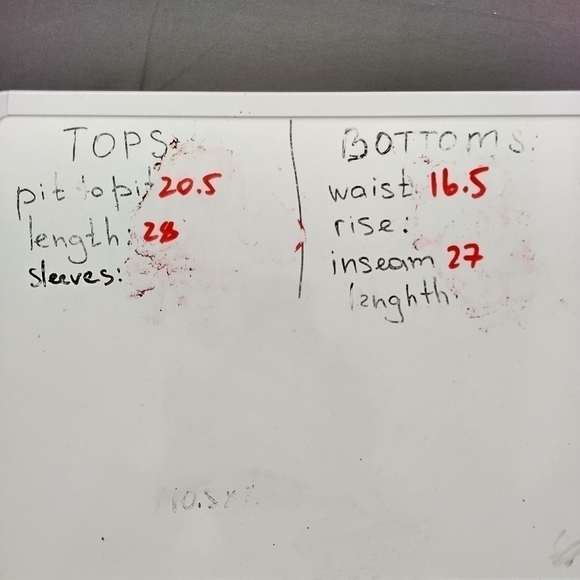 TOPS:
pit to pit 20.5
length: 28
sleeves:
BOTTOMS:
waist 16.5
rise:
inseam 27
lenghth: